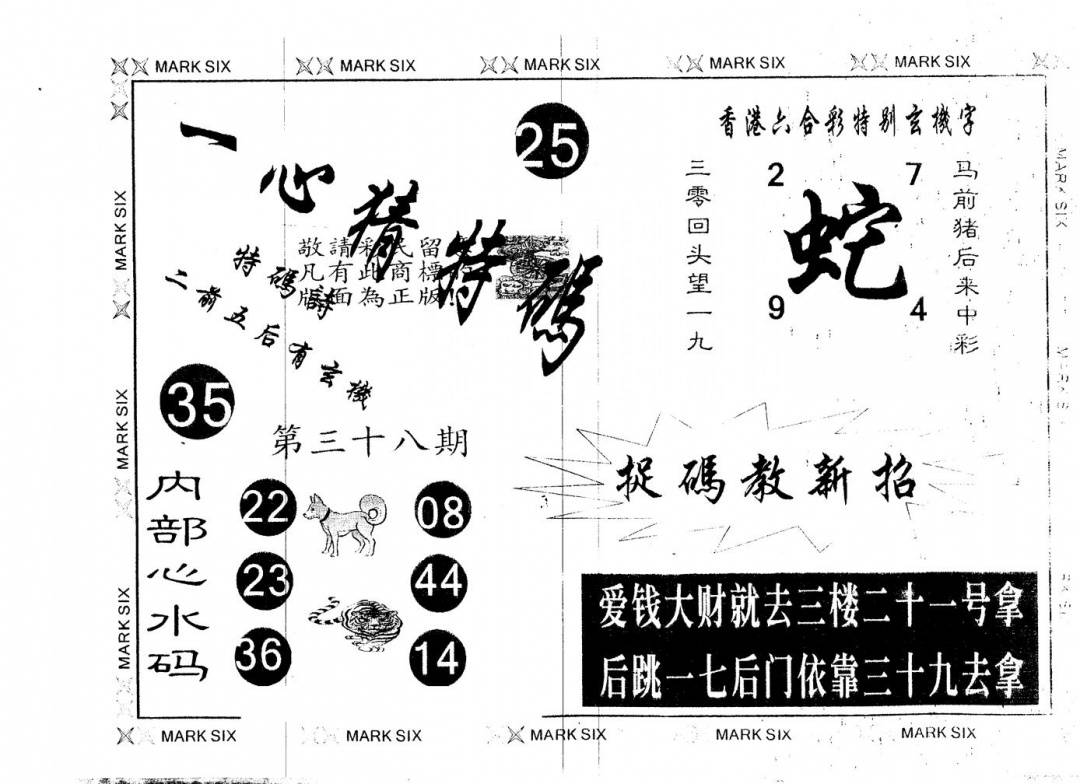 MARK SIX MARK SIX MARK SIX MARK SIX MARK SIX
一心猜特碼
25
敬請彩民留
凡有此商標
版面為正版!
特碼詩
二前五后有玄機
35
第三十八期
内部心水码
22 08
23 44
36 14
香港六合彩特别玄機字
三零回头望一九
2 7
蛇
9 4
马前猪后来中彩
捉碼教新招
爱钱大财就去三楼二十一号拿
后跳一七后门依靠三十九去拿
MARK SIX
MARK SIX
MARK SIX
MARK SIX
MARK SIX MARK SIX MARK SIX MARK SIX MARK SIX